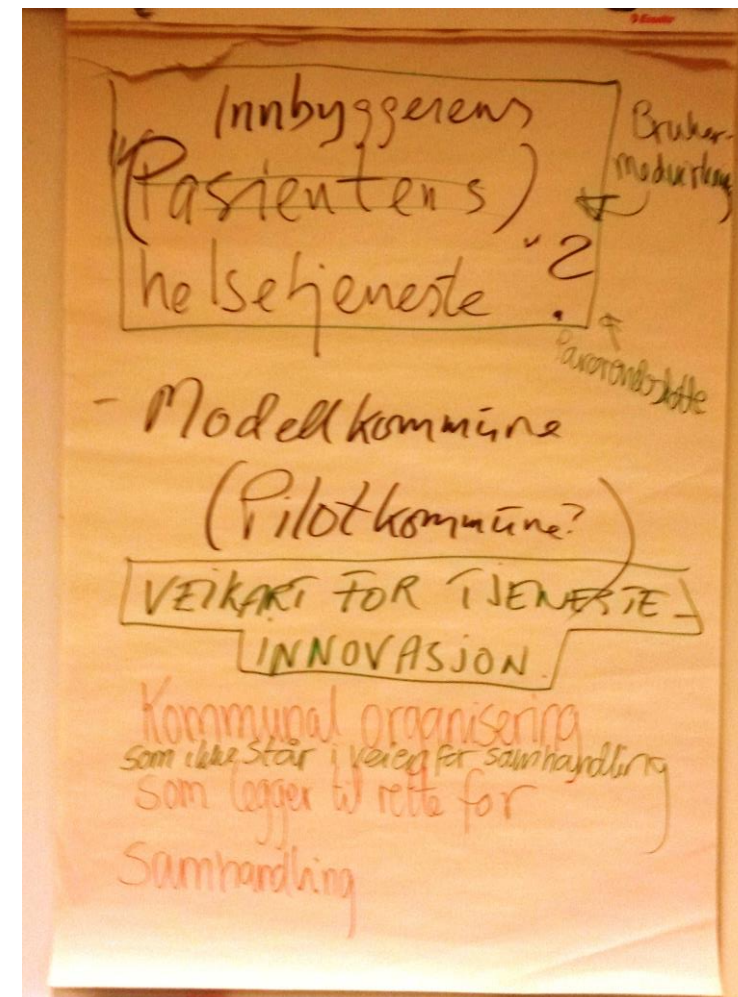 Innbyggerens
"(Pasientens)
helsetjeneste" ?
Bruker-
medvirkning
Pårørendestøtte
- Modellkommune
(Pilotkommune?)
VEIKART FOR TJENESTE-
INNOVASJON
Kommunal organisering
som ikke står i veien for samhandling
som legger til rette for
samhandling